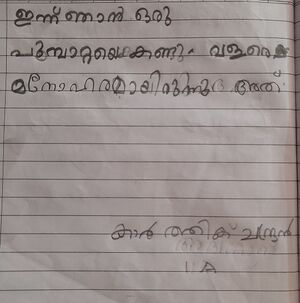 ഇന്ന് ഞാൻ ഒരു
പൂമ്പാറ്റയെ കണ്ടു. വളരെ
മനോഹരമായിരുന്നു അത്.
കാർത്തിക് ചന്ദ്രൻ
1 A